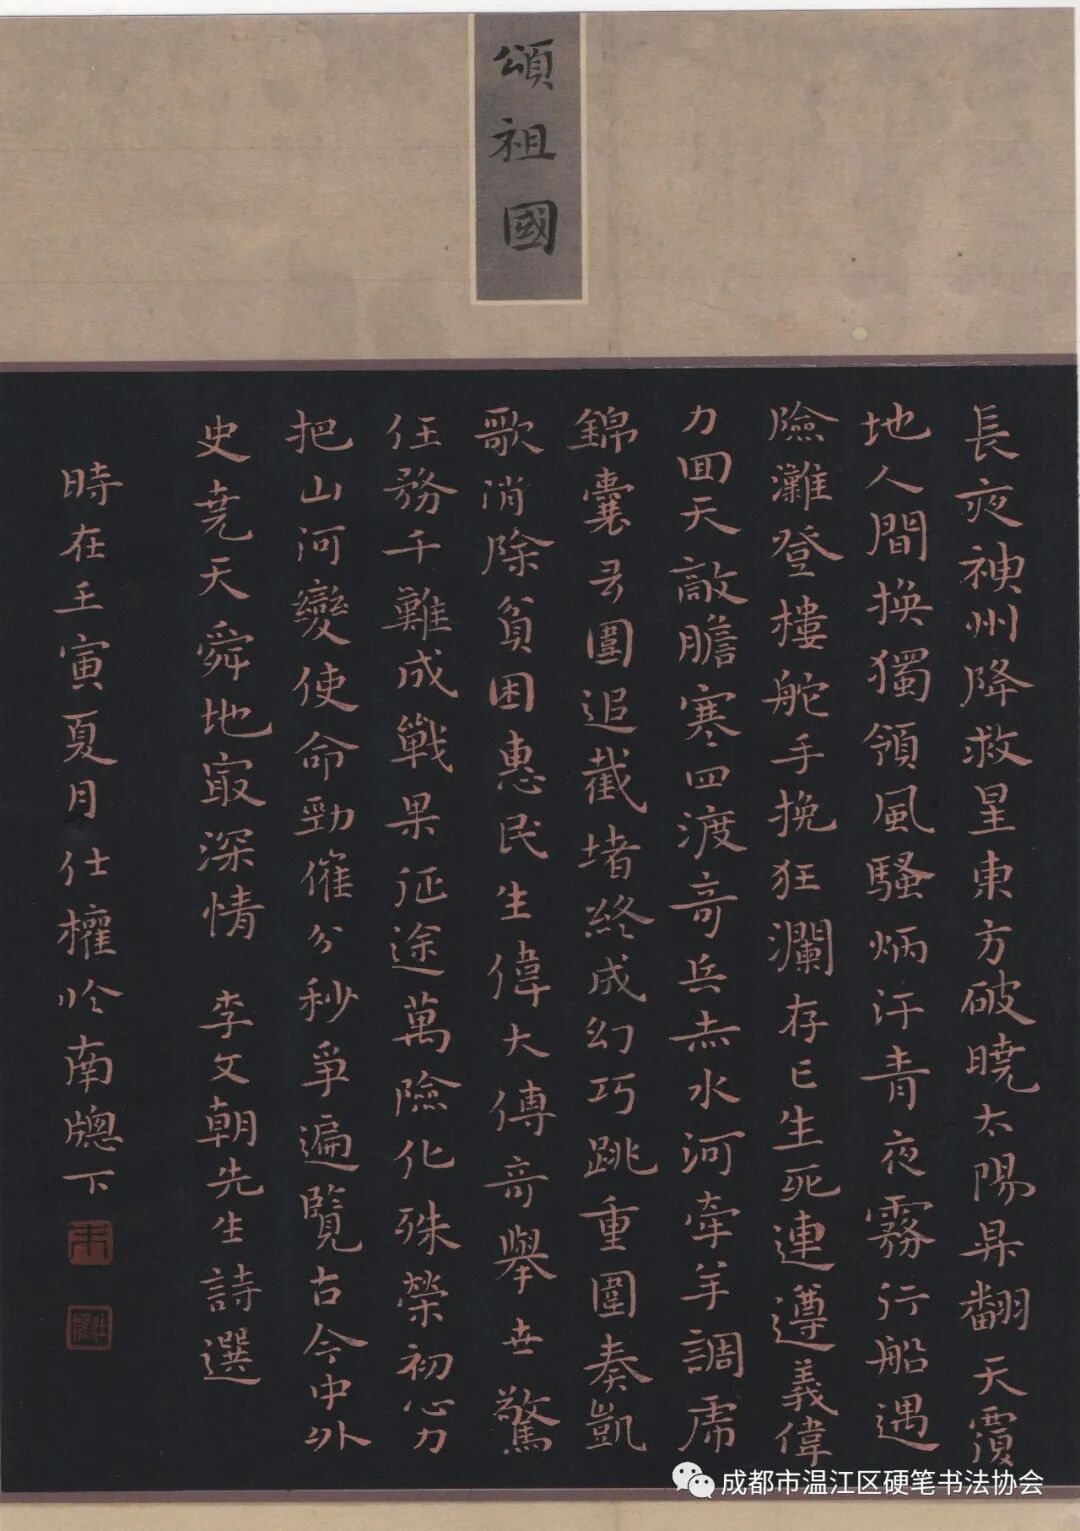 頌祖國
長夜神州降救星東方破曉太陽昇翻天覆
地人間換獨領風騷炳汗青夜霧行船遇
險灘登樓舵手挽狂瀾存亡生死連遵義偉
力回天敵膽寒四渡奇兵赤水河牽羊調虎
錦囊多圍追截堵終成幻巧跳重圍奏凱
歌消除貧困惠民生偉大傳奇舉世驚
任務千難成戰果征途萬險化殊榮初心力
把山河變使命勁催分秒爭遍覽古今中外
史堯天舜地最深情 李文朝先生詩選
時在壬寅夏月仕權於南牕下
成都市温江区硬笔书法协会